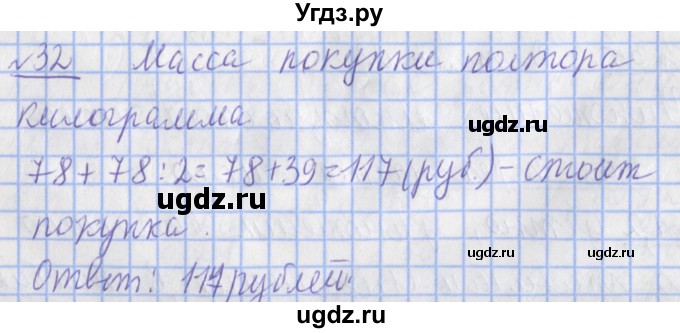 Угдз.ру
№32 Масса покупки полтора
килограмма
ugdz.ru
78 + 78 : 2 = 78 + 39 = 117 (руб.) - стоит
ugdz.ru
покупка.
ugdz.ru ugdz.ru
Ответ: 117 рублей.
ugdz.ru